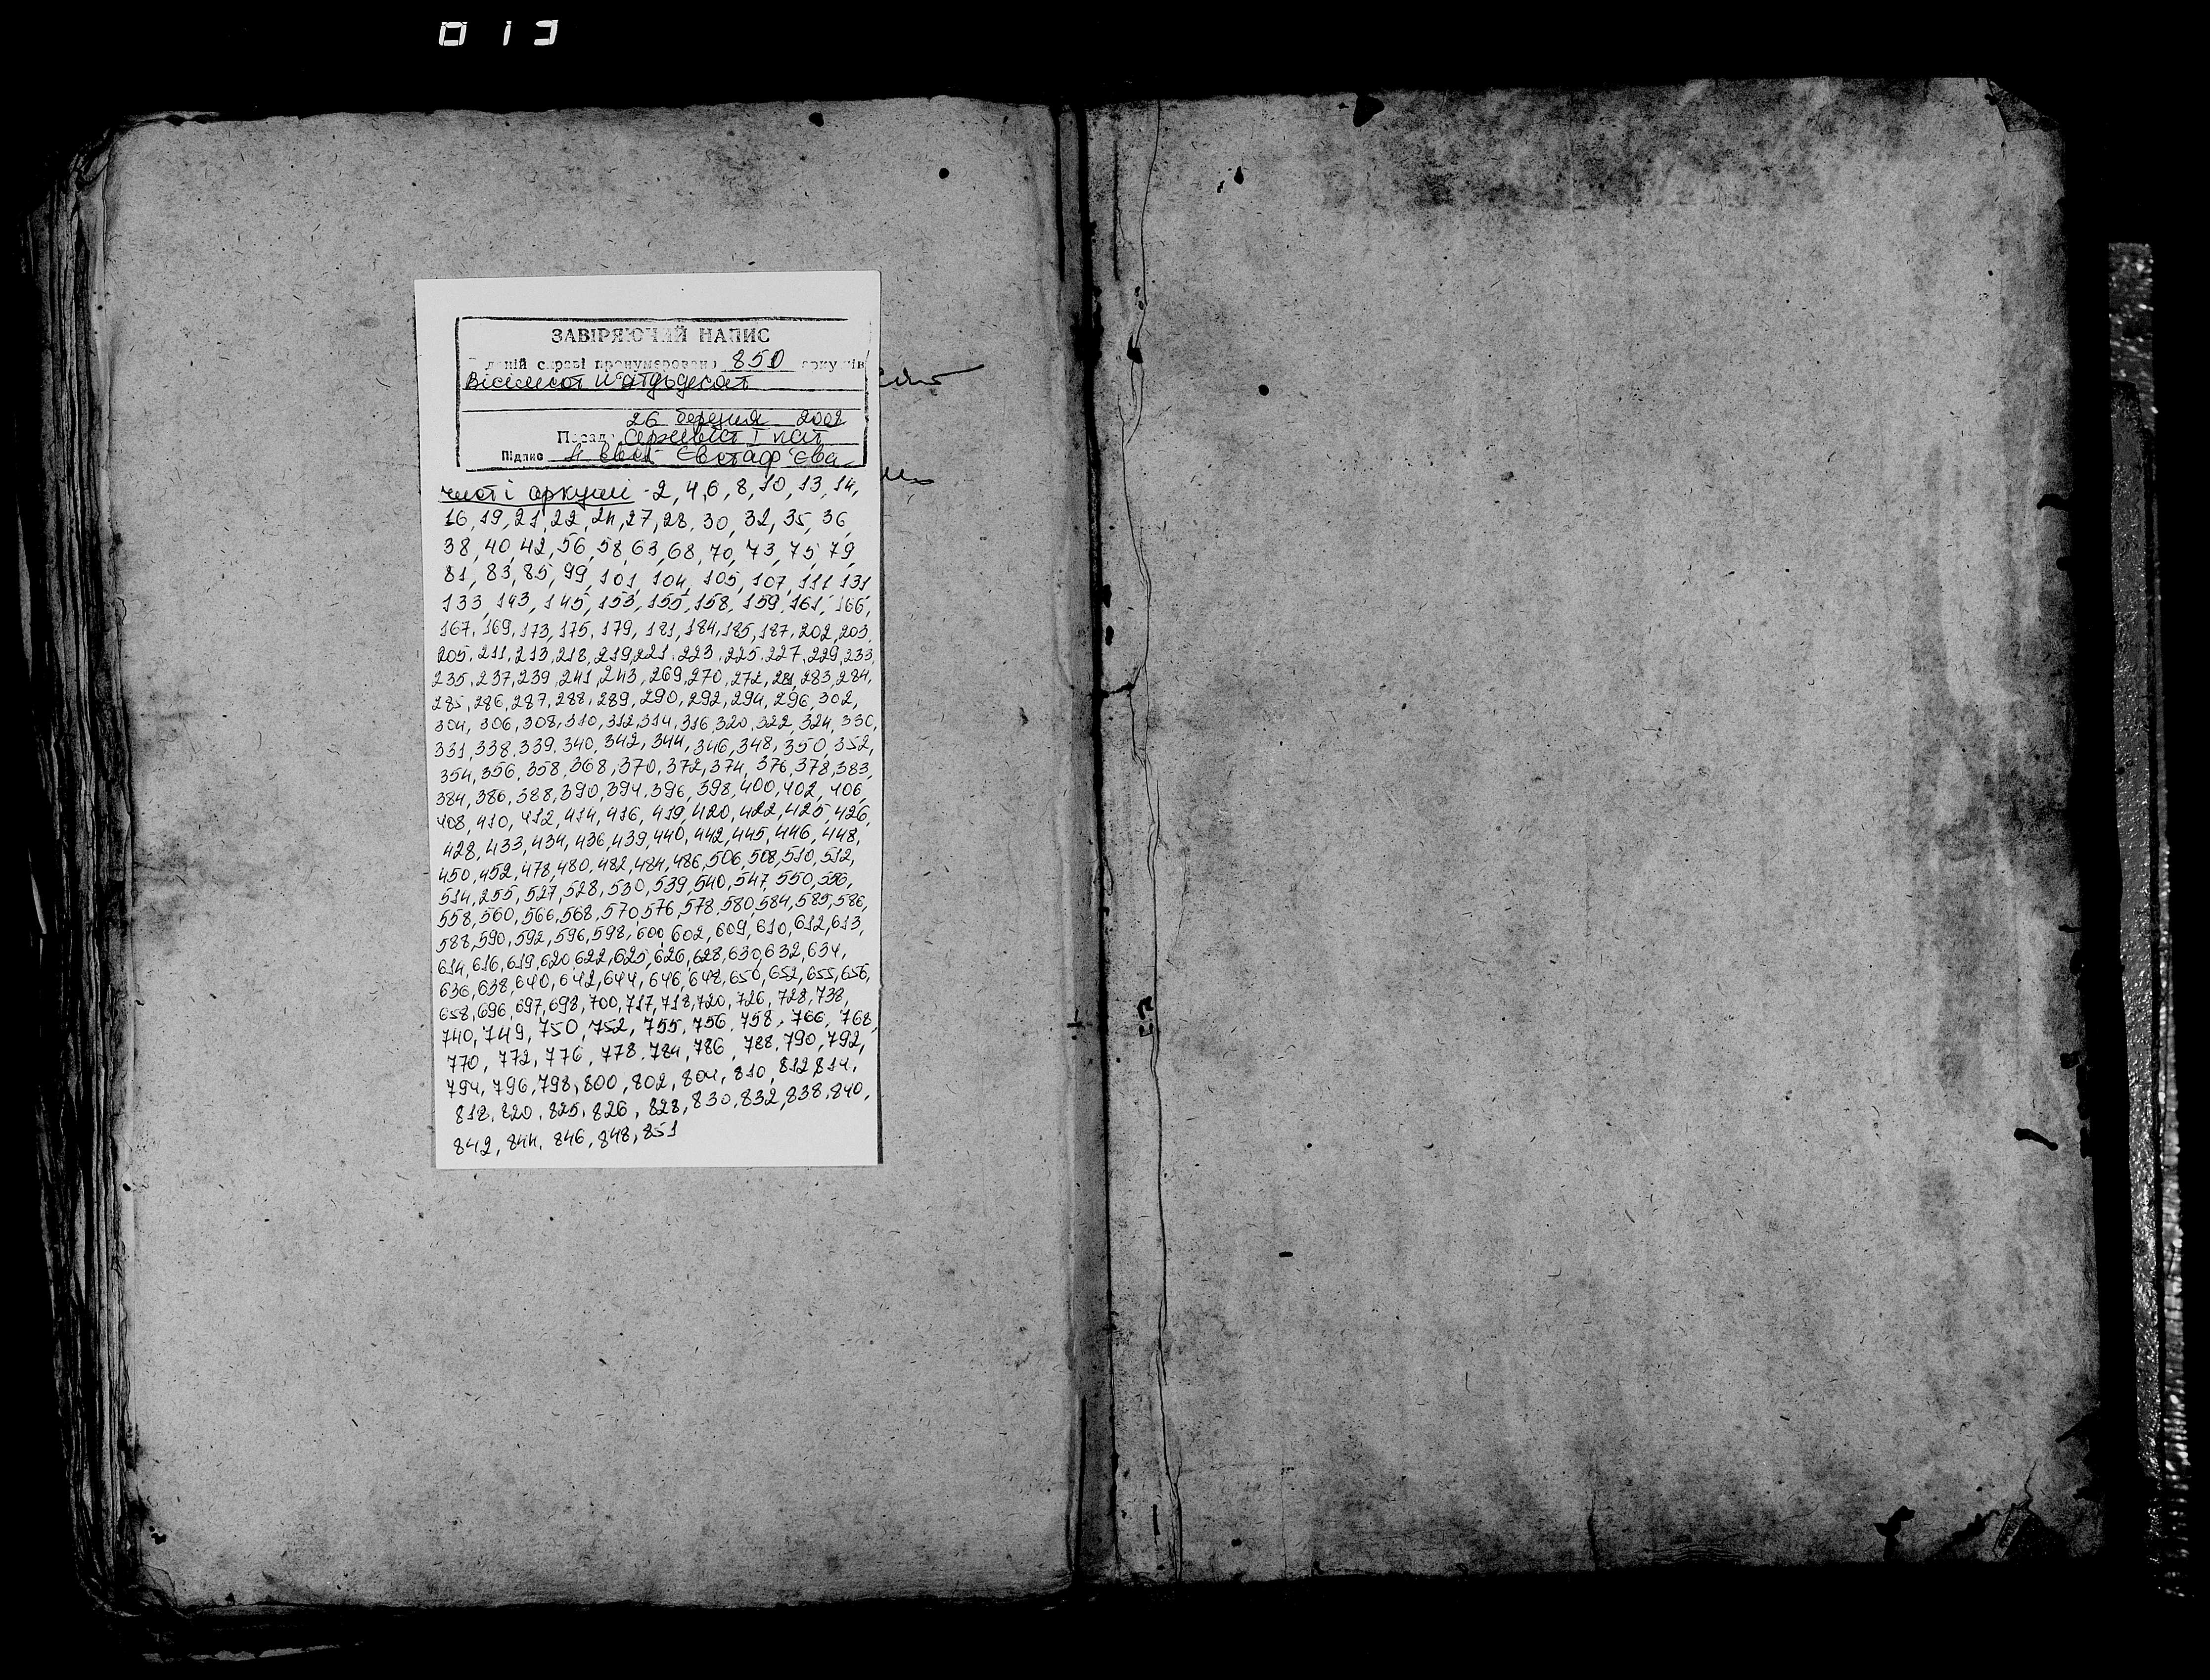 ЗАВІРЯЮЧИЙ НАПИС
даній справі пронумеровано 850 аркушів
Вісімсот п'ятдесят
26 березня 2002
Посада спеціаліст І кат
Підпис Євстаф'єва
чисті аркуші - 2, 4, 6, 8, 10, 13, 14,
16, 19, 21, 22, 24, 27, 28, 30, 32, 35, 36,
38, 40, 42, 56, 58, 63, 68, 70, 73, 75, 79,
81, 83, 85, 99, 101, 104, 105, 107, 111, 131
133, 143, 145, 153, 155, 158, 159, 161, 166,
167, 169, 173, 175, 179, 181, 184, 185, 187, 202, 203,
205, 211, 213, 218, 219, 221, 223, 225, 227, 229, 233,
235, 237, 239, 241, 243, 269, 270, 272, 281, 283, 284,
285, 286, 287, 288, 289, 290, 292, 294, 296, 302,
304, 306, 308, 310, 312, 314, 316, 320, 322, 324, 330,
331, 338, 339, 340, 342, 344, 346, 348, 350, 352,
354, 356, 358, 368, 370, 372, 374, 376, 378, 383,
384, 386, 388, 390, 394, 396, 398, 400, 402, 406,
408, 410, 412, 414, 416, 419, 420, 422, 425, 426,
428, 433, 434, 436, 439, 440, 442, 445, 446, 448,
450, 452, 478, 480, 482, 484, 486, 506, 508, 510, 512,
514, 255, 527, 528, 530, 539, 540, 547, 550, 556,
558, 560, 566, 568, 570, 576, 578, 580, 584, 585, 586,
588, 590, 592, 596, 598, 600, 602, 609, 610, 612, 613,
614, 616, 619, 620, 622, 625, 626, 628, 630, 632, 634,
636, 638, 640, 642, 644, 646, 648, 650, 652, 655, 656,
658, 696, 697, 698, 700, 717, 718, 720, 726, 728, 738,
740, 749, 750, 752, 755, 756, 758, 766, 768,
770, 772, 776, 778, 784, 786, 788, 790, 792,
794, 796, 798, 800, 802, 804, 810, 812, 814,
818, 820, 825, 826, 828, 830, 832, 838, 840,
842, 844, 846, 848, 851